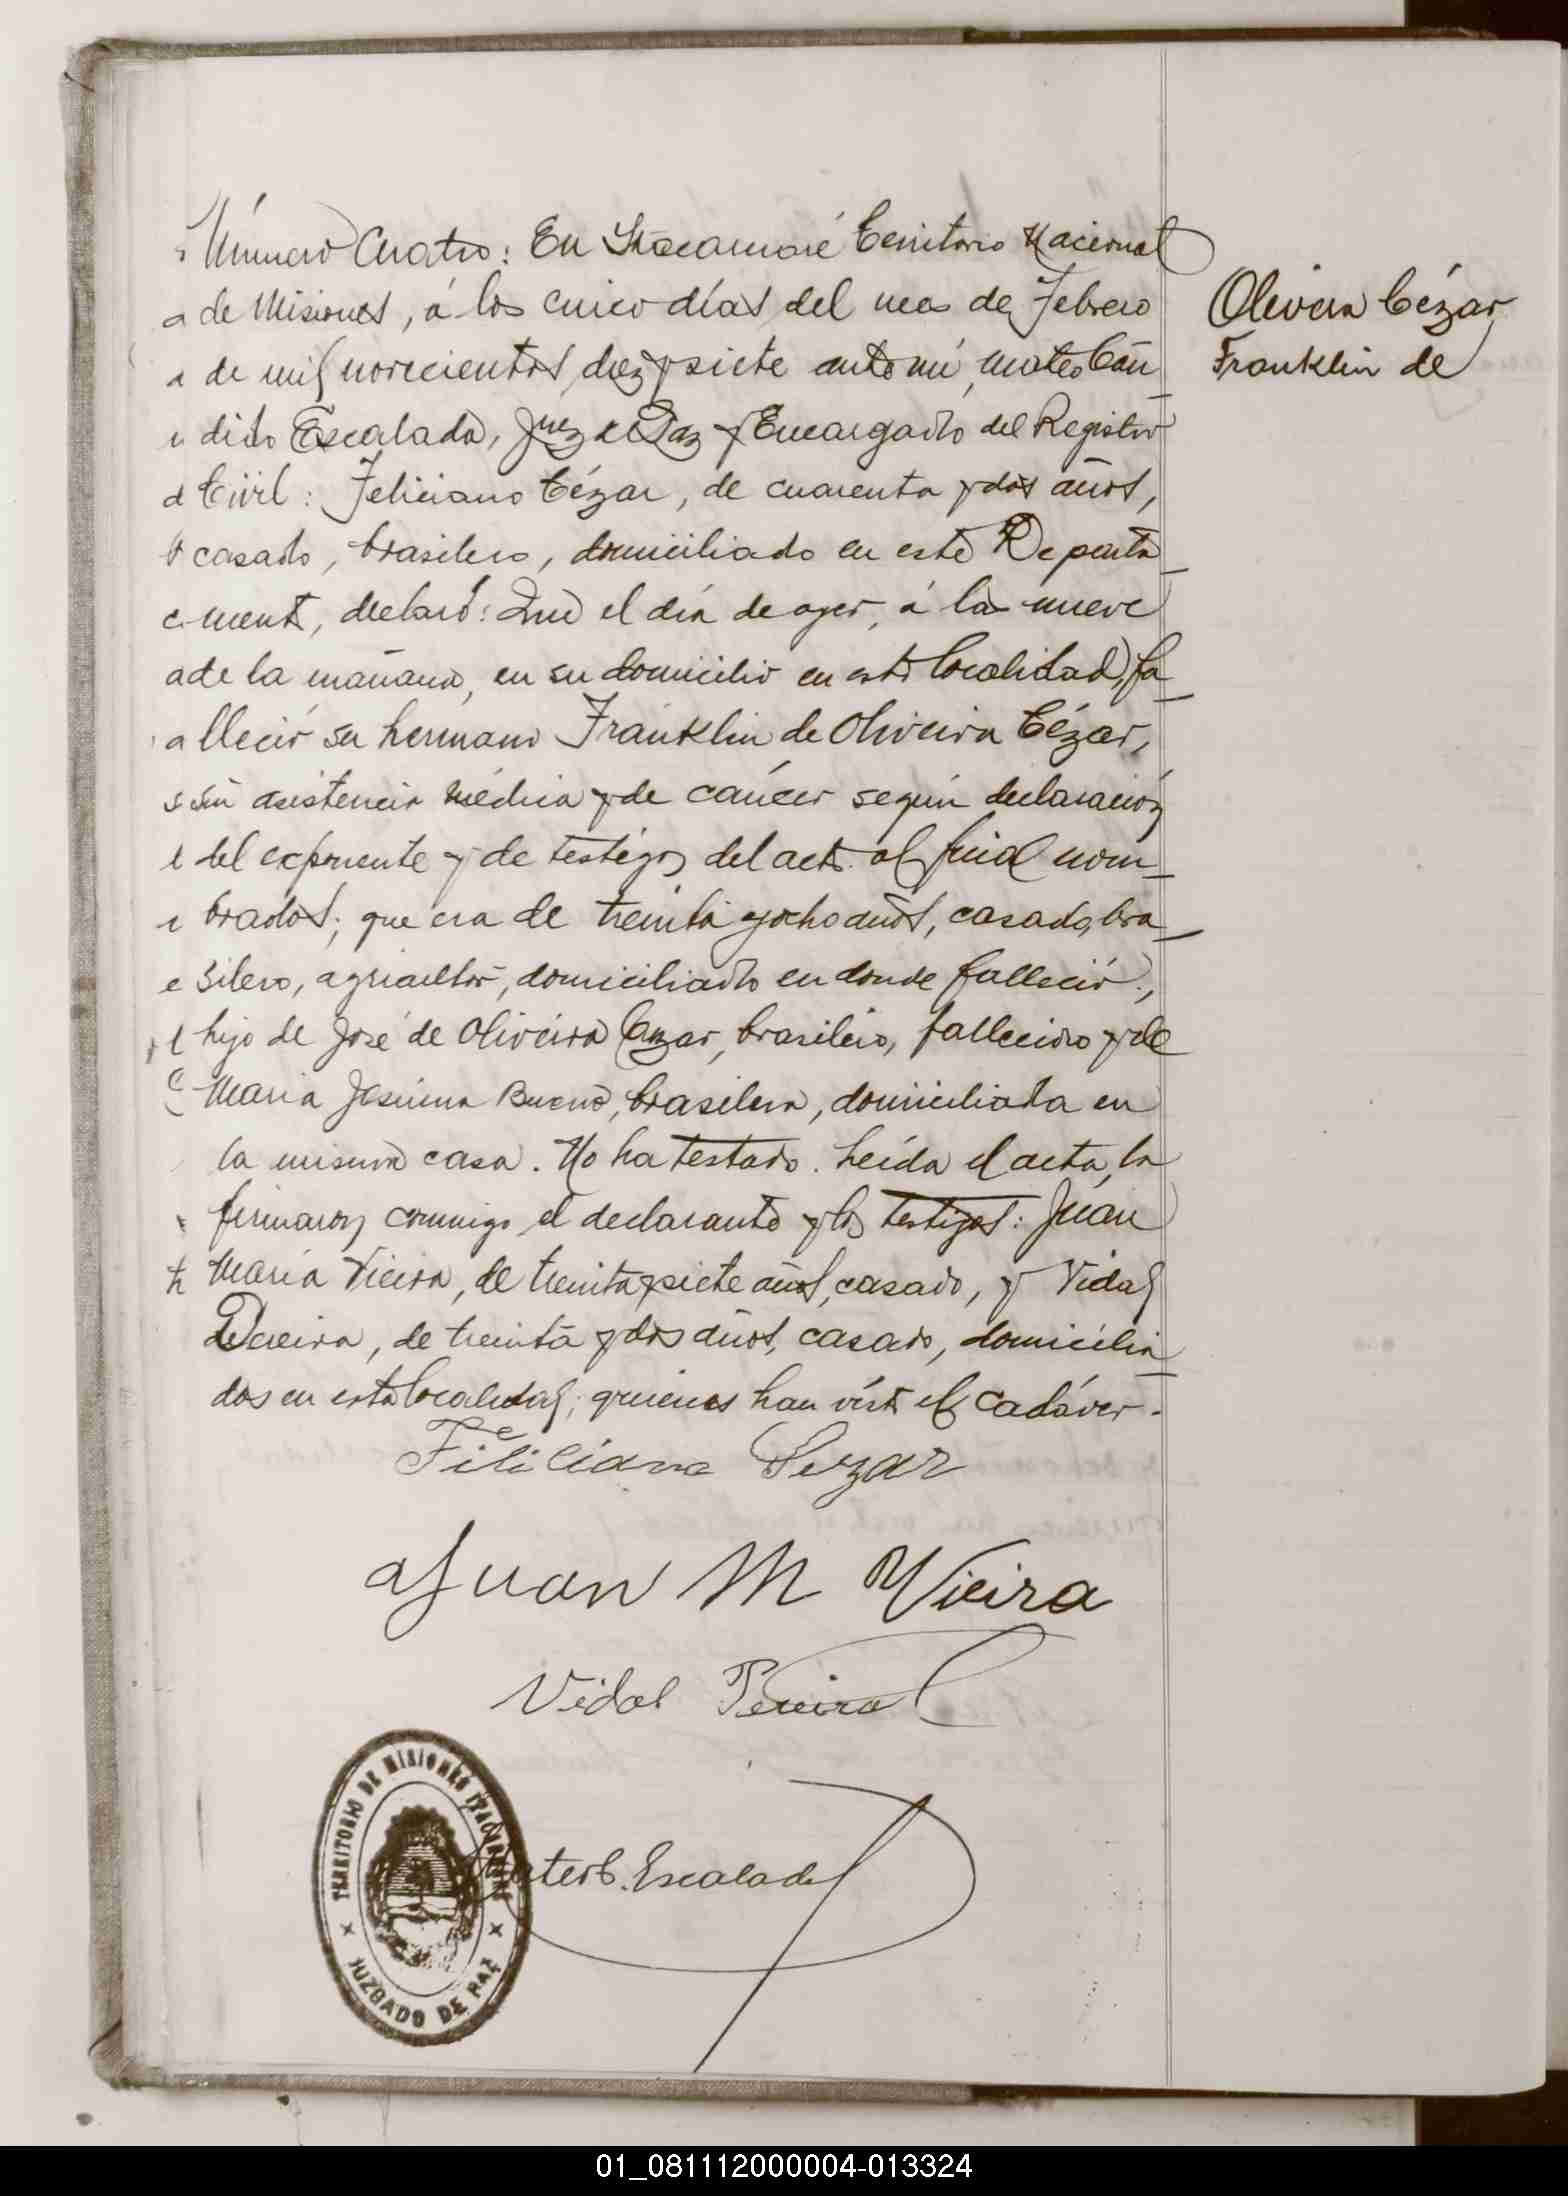 Número Cuatro: En Itacaruaré Territorio Nacional
de Misiones, á los cinco días del mes de Febrero
de mil novecientos diez y siete ante mí, Mateo Cán
dido Escalada, Juez de Paz y Encargado del Registro
Civil: Feliciano Cézar, de cuarenta y dos años,
casado, brasilero, domiciliado en este Departa
mento, declaró: Que el día de ayer, á las nueve
de la mañana, en su domicilio en esta localidad, fa
lleció su hermano Franklin de Oliveira Cézar,
sin asistencia médica y de cáncer según declaración
del exponente y de testigos del acto al final nom
brados; que era de treinta y ocho años, casado, bra
silero, agricultor, domiciliado en donde falleció,
hijo de José de Oliveira Cezar, brasilero, fallecido y de
Maria Bueno, brasilera, domiciliada en
la misma casa. No ha testado. Leída el acta, la
firmaron conmigo el declarante y los testigos: Juan
María Vieira, de treinta y siete años, casado, y Vidal
Pereira, de treinta y dos años, casado, domicilia
dos en esta localidad; quienes han visto el cadáver.
Oliveira Cézar,
Franklin de
Filiciano Sezar
Juan M Vieira
Vidal Pereira
Mateo C. Escalada
TERRITORIO DE MISIONES ITACARUARE
JUZGADO DE PAZ
01_081112000004-013324